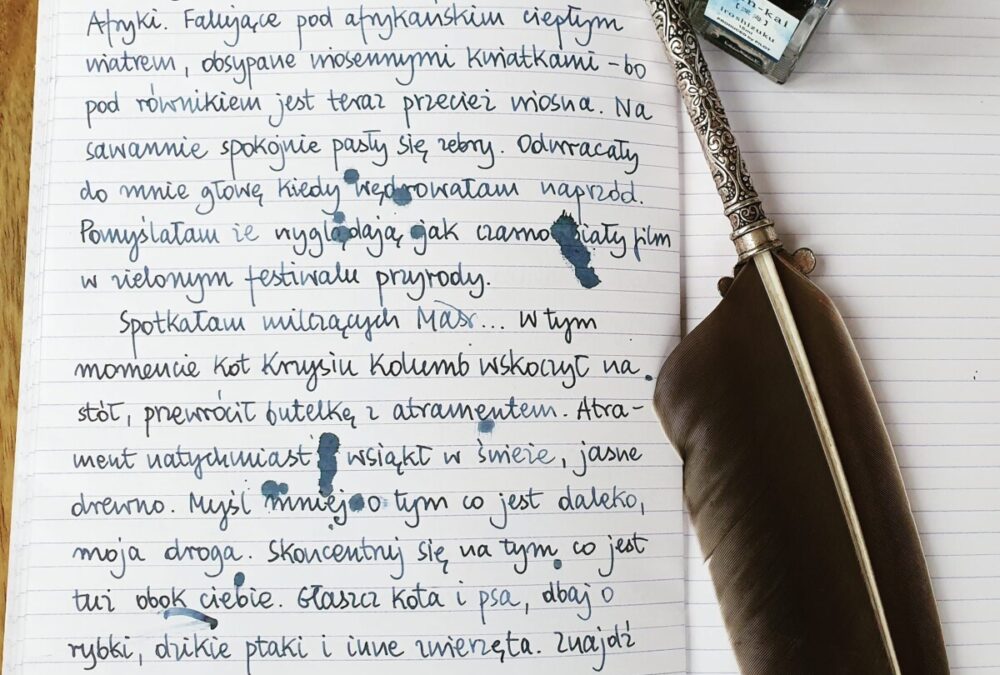 Afryki. Falujące pod afrykańskim ciepłym
wiatrem, obsypane wiosennymi kwiatkami - bo
pod równikiem jest teraz przecież wiosna. Na
sawannie spokojnie pasły się zebry. Odwracały
do mnie głowę kiedy wędrowałam naprzód.
Pomyślałam że wyglądają jak czarno biały film
w zielonym festiwalu przyrody.
Spotkałam milczących Mas... W tym
momencie kot Krzysiu Kolumb wskoczył na
stół, przewrócił butelkę z atramentem. Atra-
ment natychmiast wsiąkł w świeże, jasne
drewno. Myśl mniej o tym co jest daleko,
moja droga. Skoncentruj się na tym co jest
tuż obok ciebie. Głaszcz kota i psa, dbaj o
rybki, dzikie ptaki i inne zwierzęta. Znajdź
-kai
iroshizuku